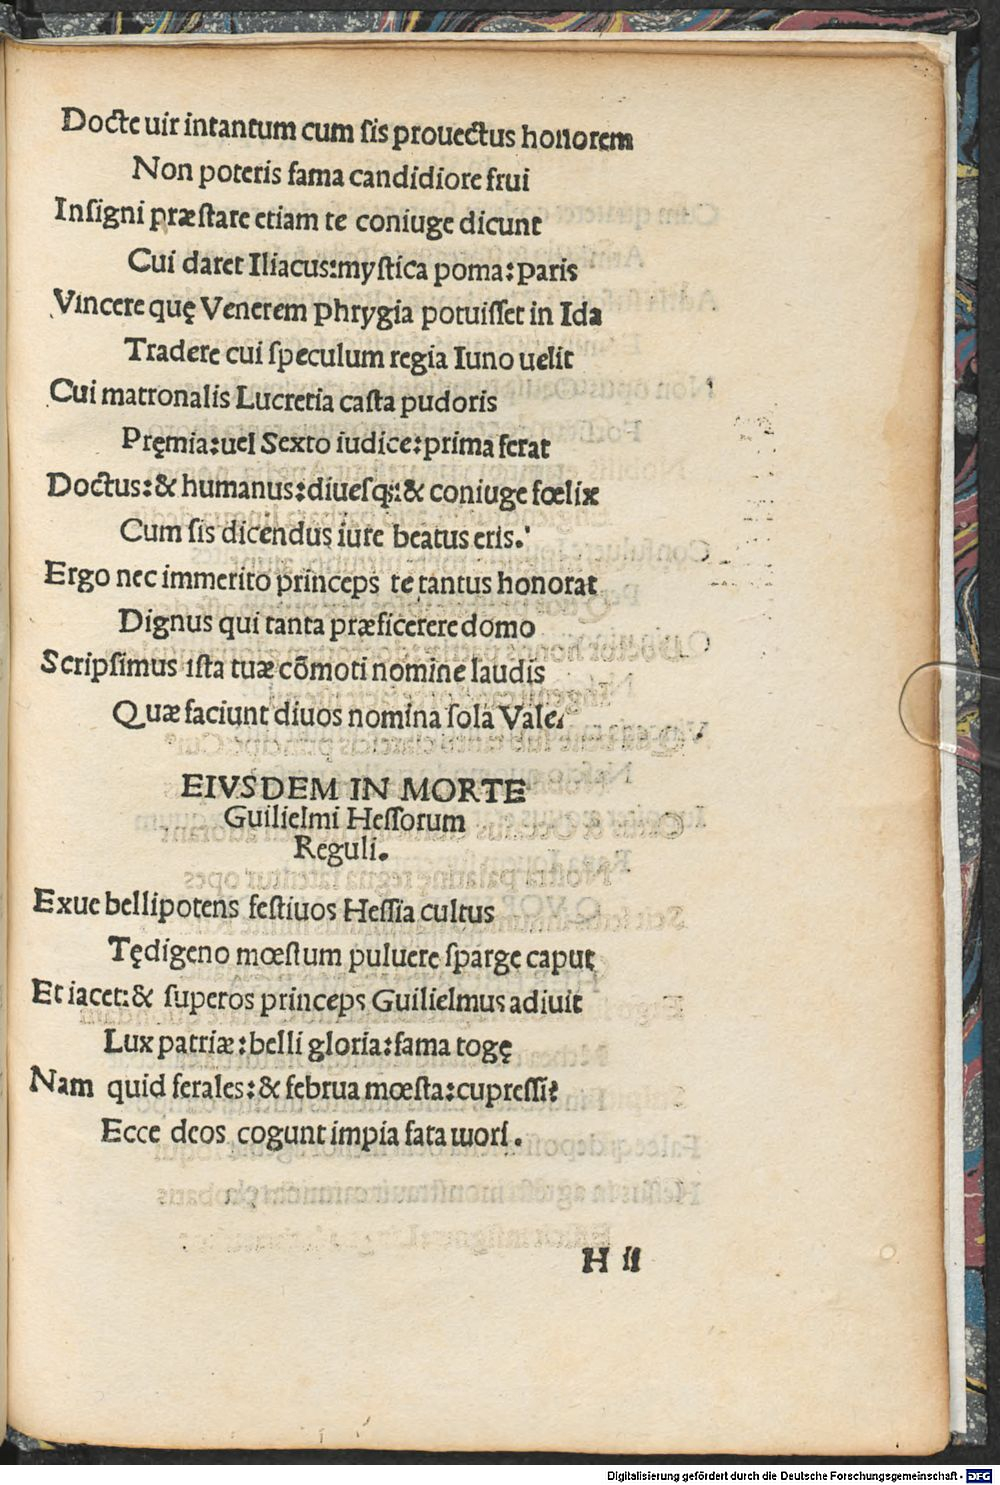 Docte uir intantum cum sis prouectus honorem
Non poteris fama candidiore frui
Insigni præstare etiam te coniuge dicunt
Cui daret Iliacus:mystica poma:paris
Vincere quę Venerem phrygia potuisset in Ida
Tradere cui speculum regia Iuno uelit
Cui matronalis Lucretia casta pudoris
Pręmia:uel Sexto iudice:prima ferat
Doctus:& humanus:diuesq;:& coniuge fœlix
Cum sis dicendus iure beatus eris.
Ergo nec immerito princeps te tantus honorat
Dignus qui tanta præficerere domo
Scripsimus ista tuæ cõmoti nomine laudis
Quæ faciunt diuos nomina sola Vale.
EIVSDEM IN MORTE
Guilielmi Hessorum
Reguli.
Exue bellipotens festiuos Hessia cultus
Tędigeno mœstum puluere sparge caput
Et iacet:& superos princeps Guilielmus adiuit
Lux patriæ:belli gloria:fama togę
Nam quid ferales:& februa mœsta:cupressi?
Ecce deos cogunt impia fata mori.
H ii
Digitalisierung gefördert durch die Deutsche Forschungsgemeinschaft - DFG